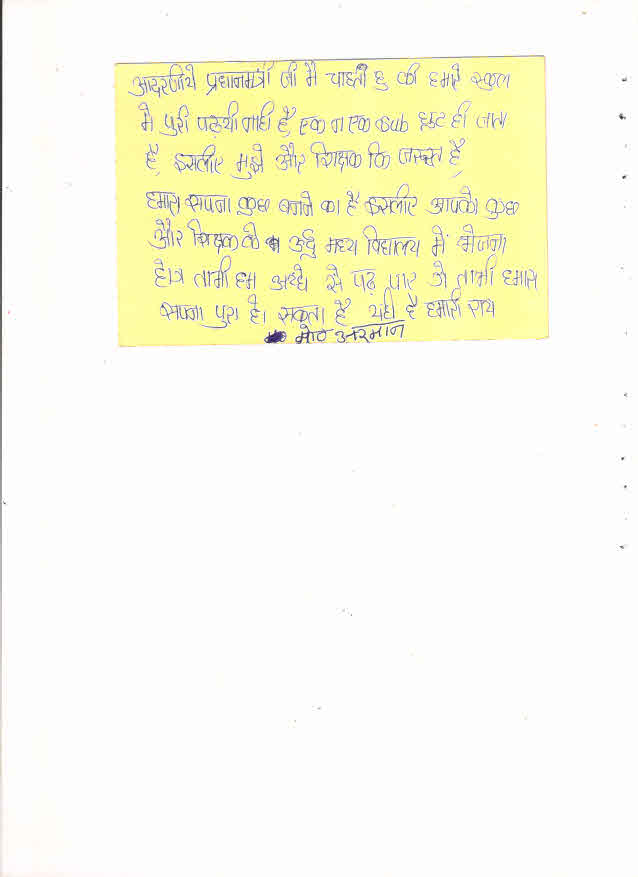 आदरणीये प्रधानमंत्री जी मै चाहता हु की हमारे स्कुल
मे पुरी पढ़यी नाही है, एक न एक Sub छुट ही जाता
है, इसलीए मुझे और शिक्षक कि जरूरत है,
हमारा सपना कुछ बनने का है इसलीए आपको कुछ
और शिक्षक को उर्दु मध्य विद्यालय में भेजना
होगा ताभी हम अच्छे से पढ़ पाए गे ताभी हमारा
सपना पुरा हो सकता है यही है हमारी राय
मो० अरमान